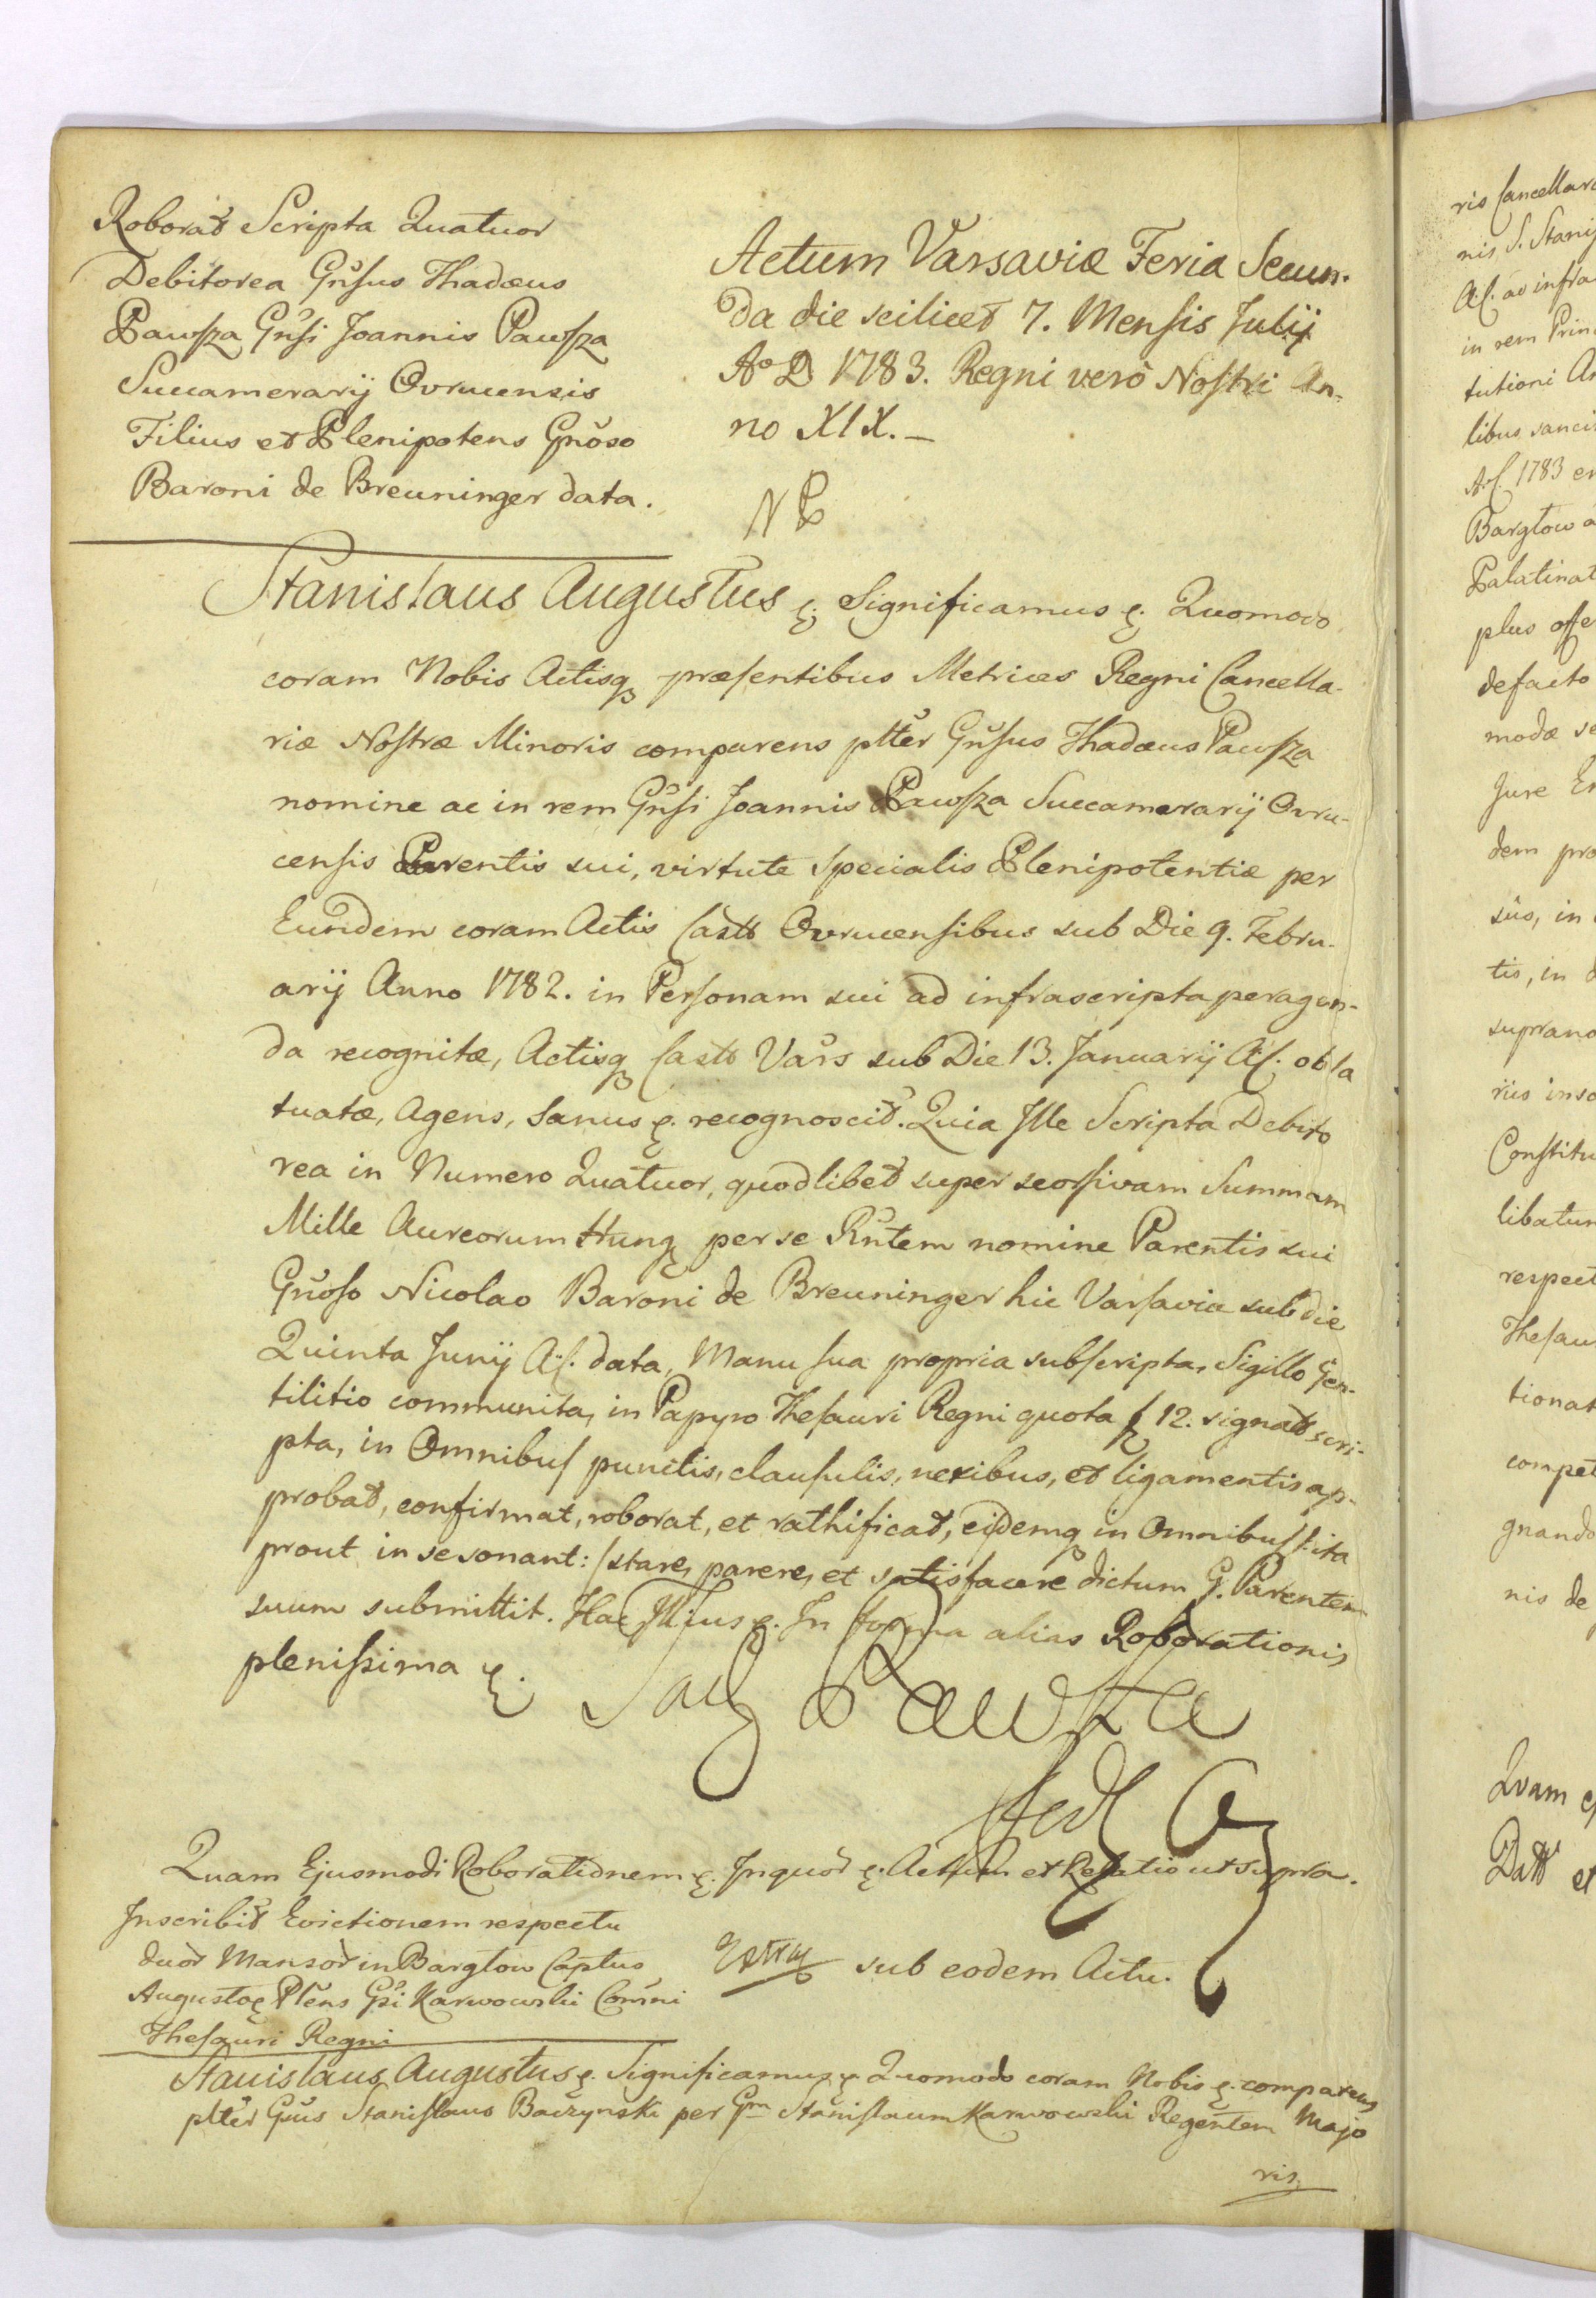 Roborat Scripta Quatuor
Debitorea Gnsus Thadæus
Pawsza Gnsi Joannis Pawsza
Succamerarij Ovrucensis
Filius et Plenipotens Gnoso
Baroni de Breuninger data.
Actum Varsaviæ Feria Secun-
da die scilicet 7. Mensis Julij
Ao D 1783. Regni vero Nostri An-
no XIX.
NP
Stanislaus Augustus &. Significamus &. Quomodo
coram Nobis Actisq præsentibus Metrices Regni Cancella-
riæ Nostræ Minoris comparens pltter Gnsus Thadæus Pawsza
nomine ac in rem Gnsi Joannis Pawsza Succamerarij Ovru-
censis Parentis sui, virtute specialis Plenipotentiæ per
Eundem coram Actis Castr Ovrucensibus sub Die 9. Febru-
arij Anno 1782. in Personam sui ad infrascripta peragen-
da recognitæ, Actisq Castr Vars sub Die 13. Januarij A. C. obla
tuatæ, Agens, Sanus &. recognoscit. Quia Ille Scripta Debito
rea in Numero Quatuor, quodlibet super seorsivam Summam
Mille Aureorum Hung per se Rntem nomine Parentis sui
Gnoso Nicolao Baroni de Breuninger hic Varsavia sub die
Quinta Junij A. C. data, Manu sua propria subscripta, Sigillo Gen-
tilitio communita, in Papyro Thesauri Regni quota f 12. signat scri-
pta, in Omnibus punctis, clausulis, nexibus, et ligamentis ap-
probat, confirmat, roborat, et rathificat, eidemq in Omnibus /: ita
prout in se sonant: / stare, parere, et satisfacere dictum G. Parentem
suum submittit. Hac Illius &. In forma alias Roborationis
plenissima &.
Pawsza
Quam Ejusmodi Roborationem &. In quor &. Actum et Relatio ut supra.
Inscribit Evictionem respectu
duor Mansor in Bargtow Captus
Augusto& Plens Gsi Karwowski Commi
Thesauri Regni
sub eodem Actu.
Stanislaus Augustus &. Significamus & Quomodo coram Nobis &. comparens
pltter Gnus Stanislaus Baczynski per Gm Stanislaum Karwowski Regentem Majo
ris
ris Cancellar
nis S. Stanis
A. C. ad infra
in rem Prin
tutioni
libus sanci
A. C. 1783 
Bargtow a
Palatinat
plus offe
defacto
modæ se
Jure
dem pro
sûs, in
tis, in
suprano
riis inso
Constitu
libatum
respect
Thesau
tionat
compet
gnando
nis de
Quam
Datt et